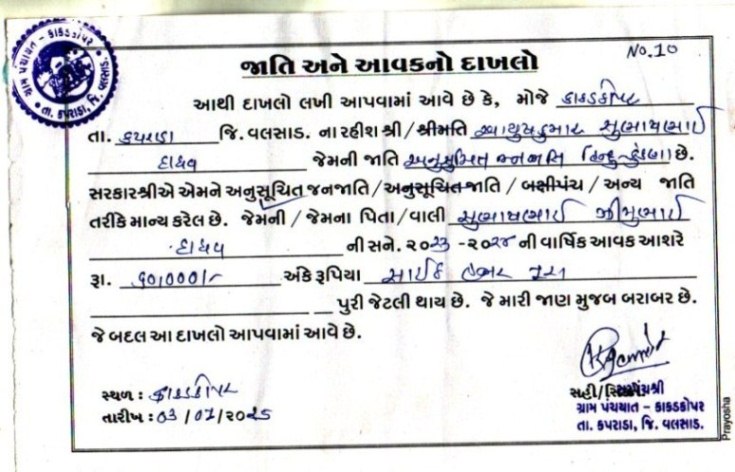 ગ્રામ પંચાયત - કાકડકોપર
તા. કપરાડા, જિ. વલસાડ.
No. 10
જાતિ અને આવકનો દાખલો
આથી દાખલો લખી આપવામાં આવે છે કે, મોજે કાકડકોપર
તા. કપરાડા જિ. વલસાડ. ના રહીશ શ્રી / શ્રીમતિ આયુષકુમાર સુભાષભાઈ
જેમની જાતિ અનુસુચિત જનજાતિ હિન્દુ-કુંકણા છે.
સરકારશ્રીએ એમને અનુસૂચિત જનજાતિ / અનુસૂચિત જાતિ / બક્ષીપંચ / અન્ય જાતિ
તરીકે માન્ય કરેલ છે. જેમની / જેમના પિતા / વાલી સુભાષભાઈ
ની સને. ૨૦૨૩ - ૨૦૨૪ ની વાર્ષિક આવક આશરે
રૂા. ૬૦,૦૦૦/- અંકે રૂપિયા સાઈઠ હજાર પુરા
પુરી જેટલી થાય છે. જે મારી જાણ મુજબ બરાબર છે.
જે બદલ આ દાખલો આપવામાં આવે છે.
સ્થળ : કાકડકોપર
તારીખ : 03 / 07 / ૨૦૨૫
સહી/સિક્કો
સરપંચશ્રી
ગ્રામ પંચાયત - કાકડકોપર
તા. કપરાડા, જિ. વલસાડ.
Prayosha